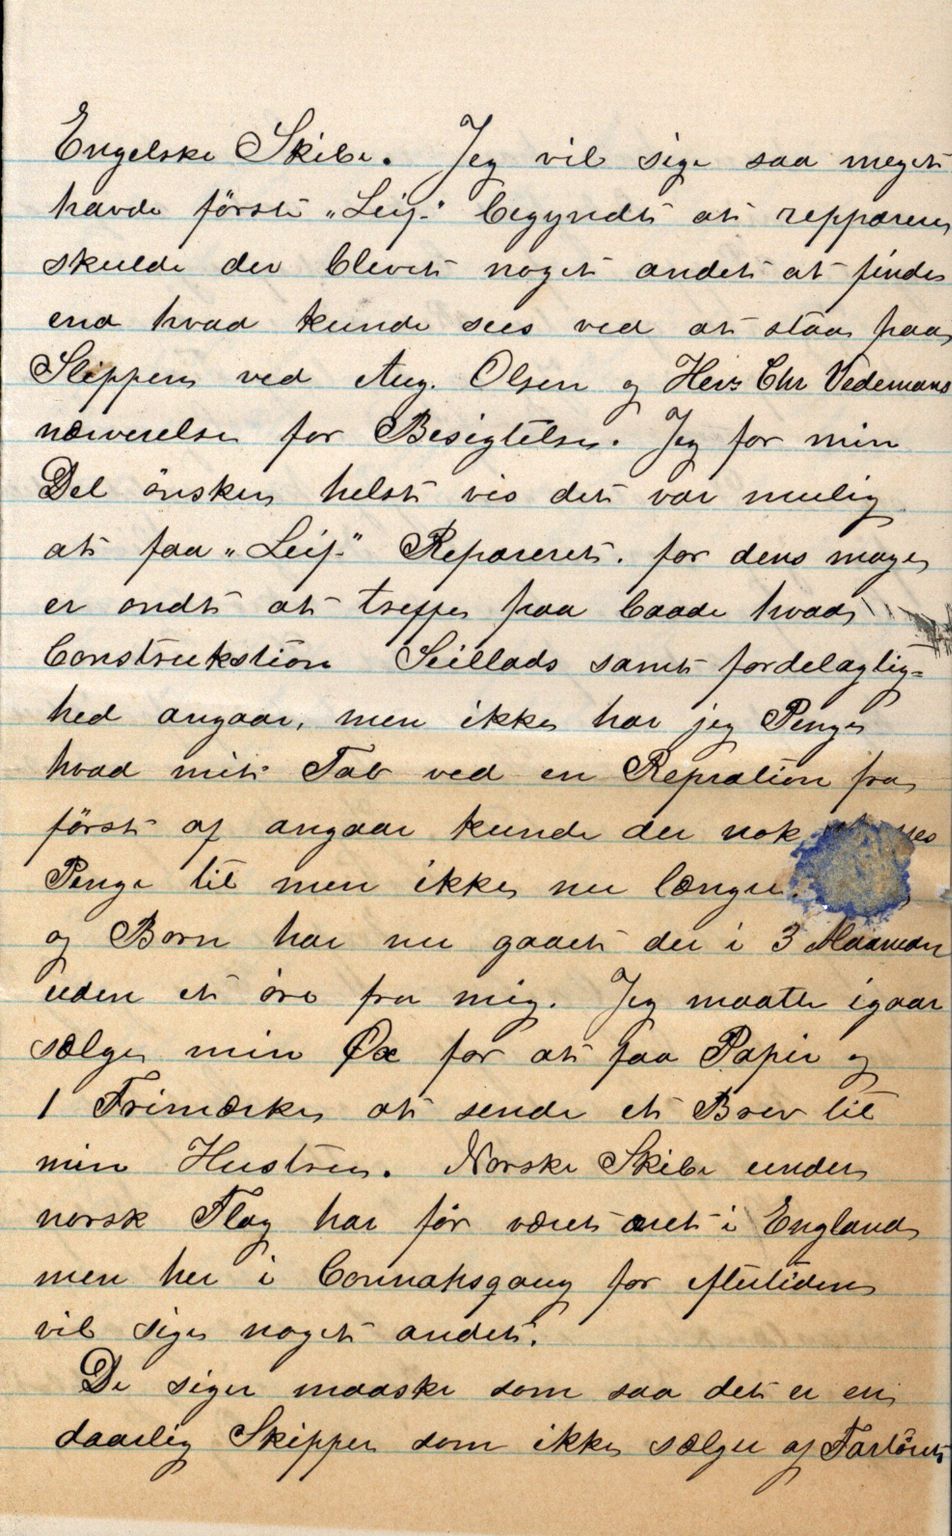 Engelske Skibe. Jeg vil sige saa meget
havde först „Leif" begyndt at repparere
skulde der blevet noget andet at finde
end hvad kunde sees ved at staa paa
Slippen ved Aug. Olsen og Herr Chr Vedemans
nærverelse for Besigtelse. Jeg for min
Del önsker helst vis det var mulig
at faa „Leif" Repareret. for dens mage
er ondt at treffe paa baade hvad
Construkstion Seillads samt fordelaglig=
hed angaar, men ikke har jeg Penge
hvad mit Tab ved en Repration fra
först af angaar kunde der nok
Penge til men ikke nu længer.
og Børn har nu gaaet der i 3 Maaneder
uden et öre fra mig. Jeg maatte igaar
sælge min Øx for at faa Papir og
1 Frimærke at sende et Brev til
min Hustru. Norske Skibe under
norsk Flag har før været aret i England
men her i Connahsqauy for eftertiden
vil sige noget andet.
De siger maaske som saa det er en
daarlig Skipper som ikke sælger af Fartöiet